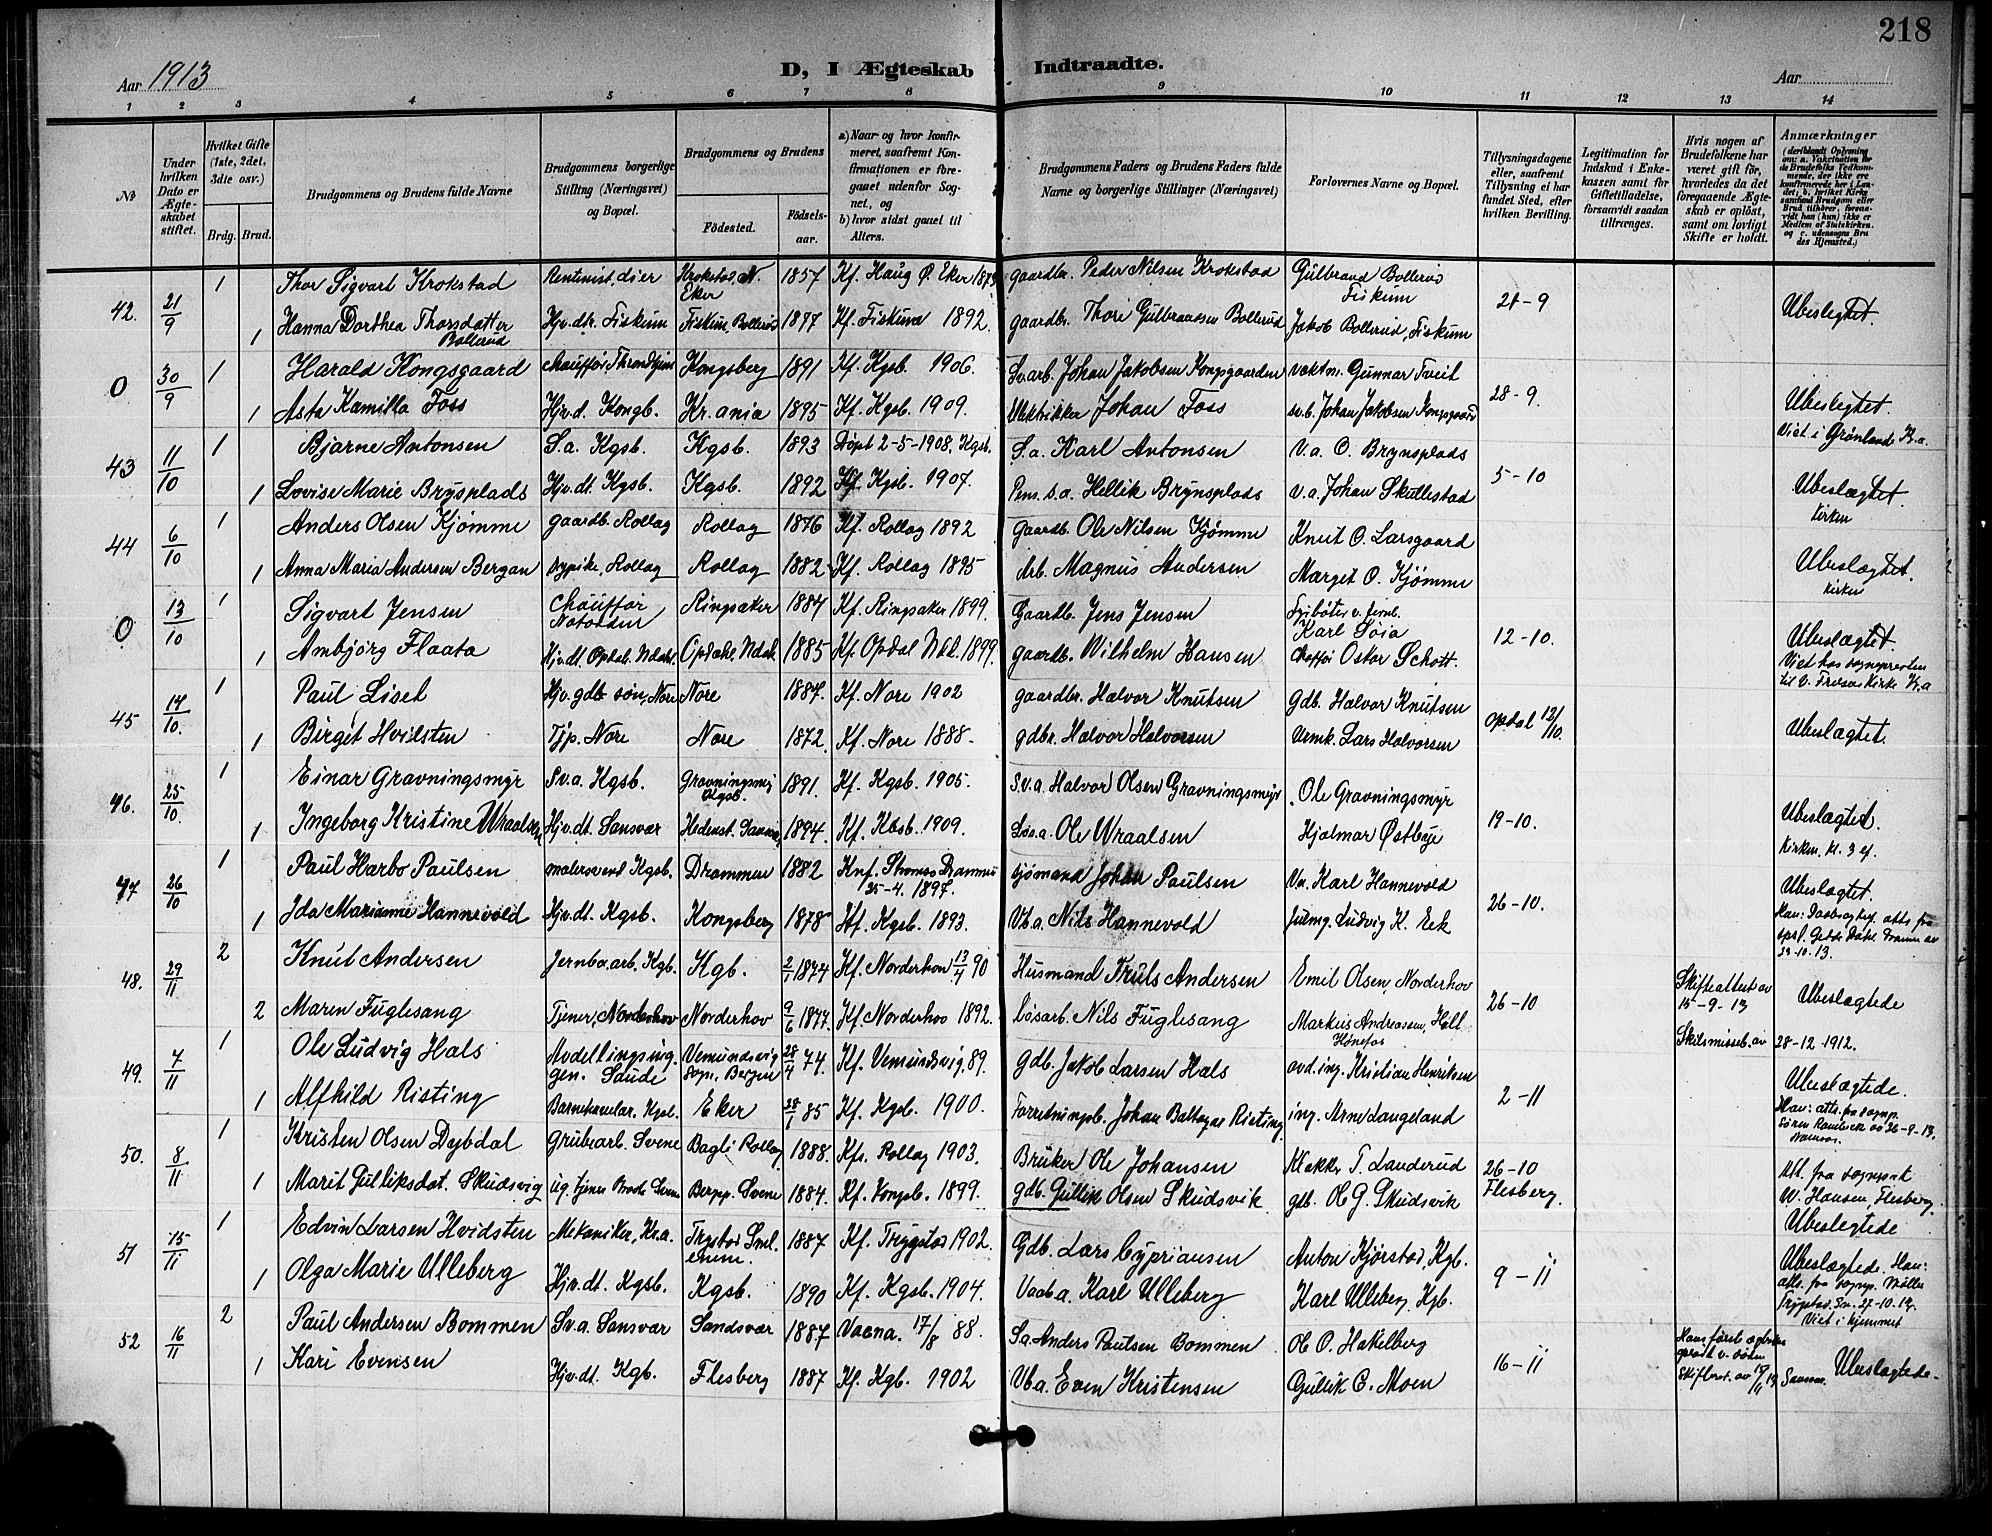 218
Aar 1913
D, I Ægteskab Indtraadte.
Aar
1 2 3 4 5 6 7 8 9 10 11 12 13 14
No
Under hvilken Dato er Ægteskabet stiftet.
Hvilket Gifte (1ste, 2det, 3die osv.)
Brdg. Brud.
Brudgommens og Brudens fulde Navne
Brudgommens borgerlige Stilling (Næringsvei) og Bopæl.
Brudgommens og Brudens
Fødested.
Fødselsaar.
a) Naar og hvor konfirmeret, saafremt Konfirmationen er foregaaet udenfor Sognet, og
b) hvor sidst gaaet til Alters.
Brudgommens Faders og Brudens Faders fulde Navne og borgerlige Stillinger (Næringsvei).
Forlovernes Navne og Bopæl.
Tillysningsdagene eller, saafremt Tillysning ei har fundet Sted, efter hvilken Bevilling.
Legitimation for Indskud i Enkekassen samt for Giftetilladelse, forsaavidt saadan tiltrænges.
Hvis nogen af Brudefolkene har været gift før, hvorledes da det foregaaende Ægteskab er opløst, samt om lovligt Skifte er holdt.
Anmærkninger
42. 21/9 1 Thor Sigvart Krokstad Rentenist, Krokstad, N. Eker 1857 Kf. Haug Ø. Eker gaardbr. Peder Nilsen Krokstad Gulbrand Bollerud Fiskum 21-9 Ubeslegtet.
1 Hanna Dorthea Thorsdatter Bollerud Hjv. dtr. Fiskum Fiskum, Bollerud 1877 Kf. Fiskum 1892. gaardbr. Thore Gulbrandsen Bollerud Jakob Bollerud, Fiskum
0 30/9 1 Harald Kongsgaard Chauffør Throndhjem Kongsberg 1891 Kf. Kgsb. 1906. Sv.arb. Johan Jakobsen Kongsgaarden vaktm. Gunnar Tveit 28-9. Ubeslegtet.
1 Asta Kamilla Foss Hjv.d. Kongb. Kr.ania 1895 Kf. Kgsb. 1909. Johan Foss Johan Jakobsen Kongsgaard Viet i Grønlands K.a.
43 11/10 1 Bjarne Antonsen S.a. Kgsb. Kgsb. 1893 Døpt 2-5-1908, Kgsb. S.a. Karl Antonsen V.a. O. Brynsplads 5-10 Ubeslægtet.
1 Lovise Marie Brysplads Hjv.dt. Kgsb. Kgsb. 1892 Kf. Kgsb. 1907. Pens. s.a. Hellik Brynsplads v.a. Johan Skullestad Kirken
44 6/10 1 Anders Olsen Kjømme gaardb. Rollag Rollag 1876 Kf. Rollag 1892 gaardb. Ole Nilsen Kjømme Knut O. Larsgaard Ubeslægtet.
1 Anna Maria Andersen Bergan Rollag Rollag 1882 Kf. Rollag 1895 Arb. Magnus Andersen Marget O. Kjømme Kirken
0 13/10 1 Sigvart Jensen Chauffør Notodden Ringsaker 1884 Kf. Ringsaker 1899. Gaardb. Jens Jensen Karl Søia 12-10. Ubeslægtet.
1 Ambjørg Flaata Hjv.dt. Opdal. Ndal. Opdal, Ndal. 1885 Kf. Opdal Ndl. 1899. gaardb. Wilhelm Hansen Oskar Schott. Viet hos sognepresten til V. Frelsers Kirke Kr.a
45 14/10. 1 Paul Liset Hjv. gdb søn, Nore Nore 1887. Kf. Nore 1902 gaardbr. Halvor Knutsen Gdb. Halvor Knutsen Opdal 12/10. Ubeslægtet.
1 Birgit Hvilsten Tjp. Nore Nore 1872. Kf. Nore 1888. gdbr. Halvor Halvorsen Lars Halvorsen
46. 25/10. 1 Einar Gravningsmyr Sv.a. Kgsb. Gravningsmyr Kgsb. 1891. Kf. Kgsb. 1905. S.v.a. Halvor Olsen Gravningsmyr Ole Gravningsmyr 19-10. Ubeslægtet.
1 Ingeborg Kristine Wraalsen Hjv.dt. Sansvær Hedenst. 1894. Kf. Kbsb. 1909. Løs.a. Ole Wraalsen Hjalmar Østbye Kirken. kl. 3 ef.
47 26/10 1 Paul Harbo Paulsen malersvend Kgsb. Drammen 1882 Knf. Strømsø Drammen 25-4. 1897. sjømand Johan Paulsen Karl Hannevold 26-10. Ubeslægtet.
1 Ida Marianne Hannevold Hjv.dt. Kgsb. Kongsberg 1878 Kf. Kgsb. 1893. Vb.a. Nils Hannevold Ludvig K. Eek
48. 29/11 2 Knut Andersen Jernba.arb. Kgb. Kgb. 2/1 1874 Kf. Norderhov 13/4 90 Husmand Truls Andersen Emil Olsen, Norderhov 26-10 Skifteattest av 15-9-13 Ubeslægtede
2 Maren Fuglesang Tjener, Norderhov Norderhov 9/6 1877. Kf. Norderhov 1892. Løsarb. Nils Fuglesang Markus Andreassen, Hønefos Skilsmisseb. av 28-12-1912.
49. 7/11 1 Ole Ludvig Hals Saude 28/4 74. 89. gdb. Jakob Larsen Hals avd.ing. Kristian Henriksen 2-11 Ubeslægtede.
1 Alfhild Risting Kgsb. Eker 28/1 85 Kf. Kgsb. 1900. Johan Risting ing. Arne Langeland
50. 8/11 1 Kristen Olsen Dybdal Grubearb. Svene Rollag 1888. Kfr. Rollag 1903. Bruker Ole Johansen T. Landerud 26-10 Flesberg.
1 Marit Gulliksdat. Skudsvig Svene 1884. Kf. Kongsb. 1899. gdb. Gullik Olsen Skudsvik gdb. Ole G. Skudsvik W. Hansen, Flesberg. Ubeslegtede
51 15/11 1 Edvin Larsen Hvidsten Mekaniker, Kr.a. 1887 Kf. Trygstad 1902. Gdb. Lars Cypriansen Anton Kjørstad, Kgb. 9-11 Ubeslægtede. Han:
1 Olga Marie Ulleberg Hjv.dt. Kgsb. Kgsb. 1890 Kf. Kgsb. 1904. Karl Ulleberg Karl Ulleberg, Kgb. Viet i hjemmet
52 16/11 2 Paul Andersen Bommen Sv.a. Sansvær Sandsvær 1887 17/8 88. S.a. Anders Paulsen Bommen Ole O. Hakelberg 16-11 Ubeslægtede.
1 Kari Evensen Hjv.dt. Kgb. Flesberg 1887 Kf. Kgb. 1902 Vb.a. Even Kristensen Gullik C. Moen